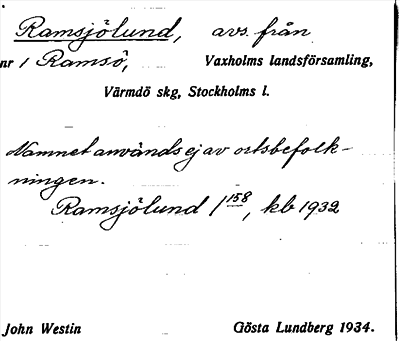 Ramsjölund, avs. från
nr 1 Ramsö, Vaxholms landsförsamling,
Värmdö skg, Stockholms l.
Namnet används ej av ortsbefolk-
ningen.
Ramsjölund 1 158, kb 1932
John Westin Gösta Lundberg 1934.